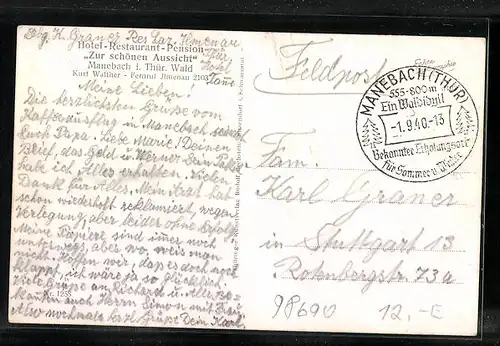 K. Graner Res Laz. Ilmenau
Hotel-Restaurant-Pension
"Zur schönen Aussicht"
Manebach i. Thür. Wald
Kurt Walther - Fernruf Ilmenau 2103
Meine Lieben!
Die herzlichsten Grüße vom
Kaffeeausflug in Manebach sendet
Euch Papa. Liebe Marie! Deinen
Brief, das Geld u. Werner sein Paket
habe ich Alles erhalten. Vielen
Dank für Alles. Mein Arzt hat
schon wiederholt reklamiert, wegen
Verlegung, aber leider ohne Erfolg.
Meine Papiere sind immer noch
unterwegs, aber wo, weis man
nicht. Hoffen wir, daß es doch noch
klappt, ich wäre ja so glücklich.
Viele Grüße an Richards u. Alle Be-
kannten auch Herrn Simon mit Frau
Also nochmals herzl. Grüße Dein Karl.
Nr. 1255
Feldpost
MANEBACH (THÜR)
555-800m
Ein Waldidyll
-1.9.40.-13
Bekannter Erholungsort
für Sommer u. Winter
Fam.
Karl Graner
in Stuttgart 13
Rotenbergstr. 73a
98690
12,-E